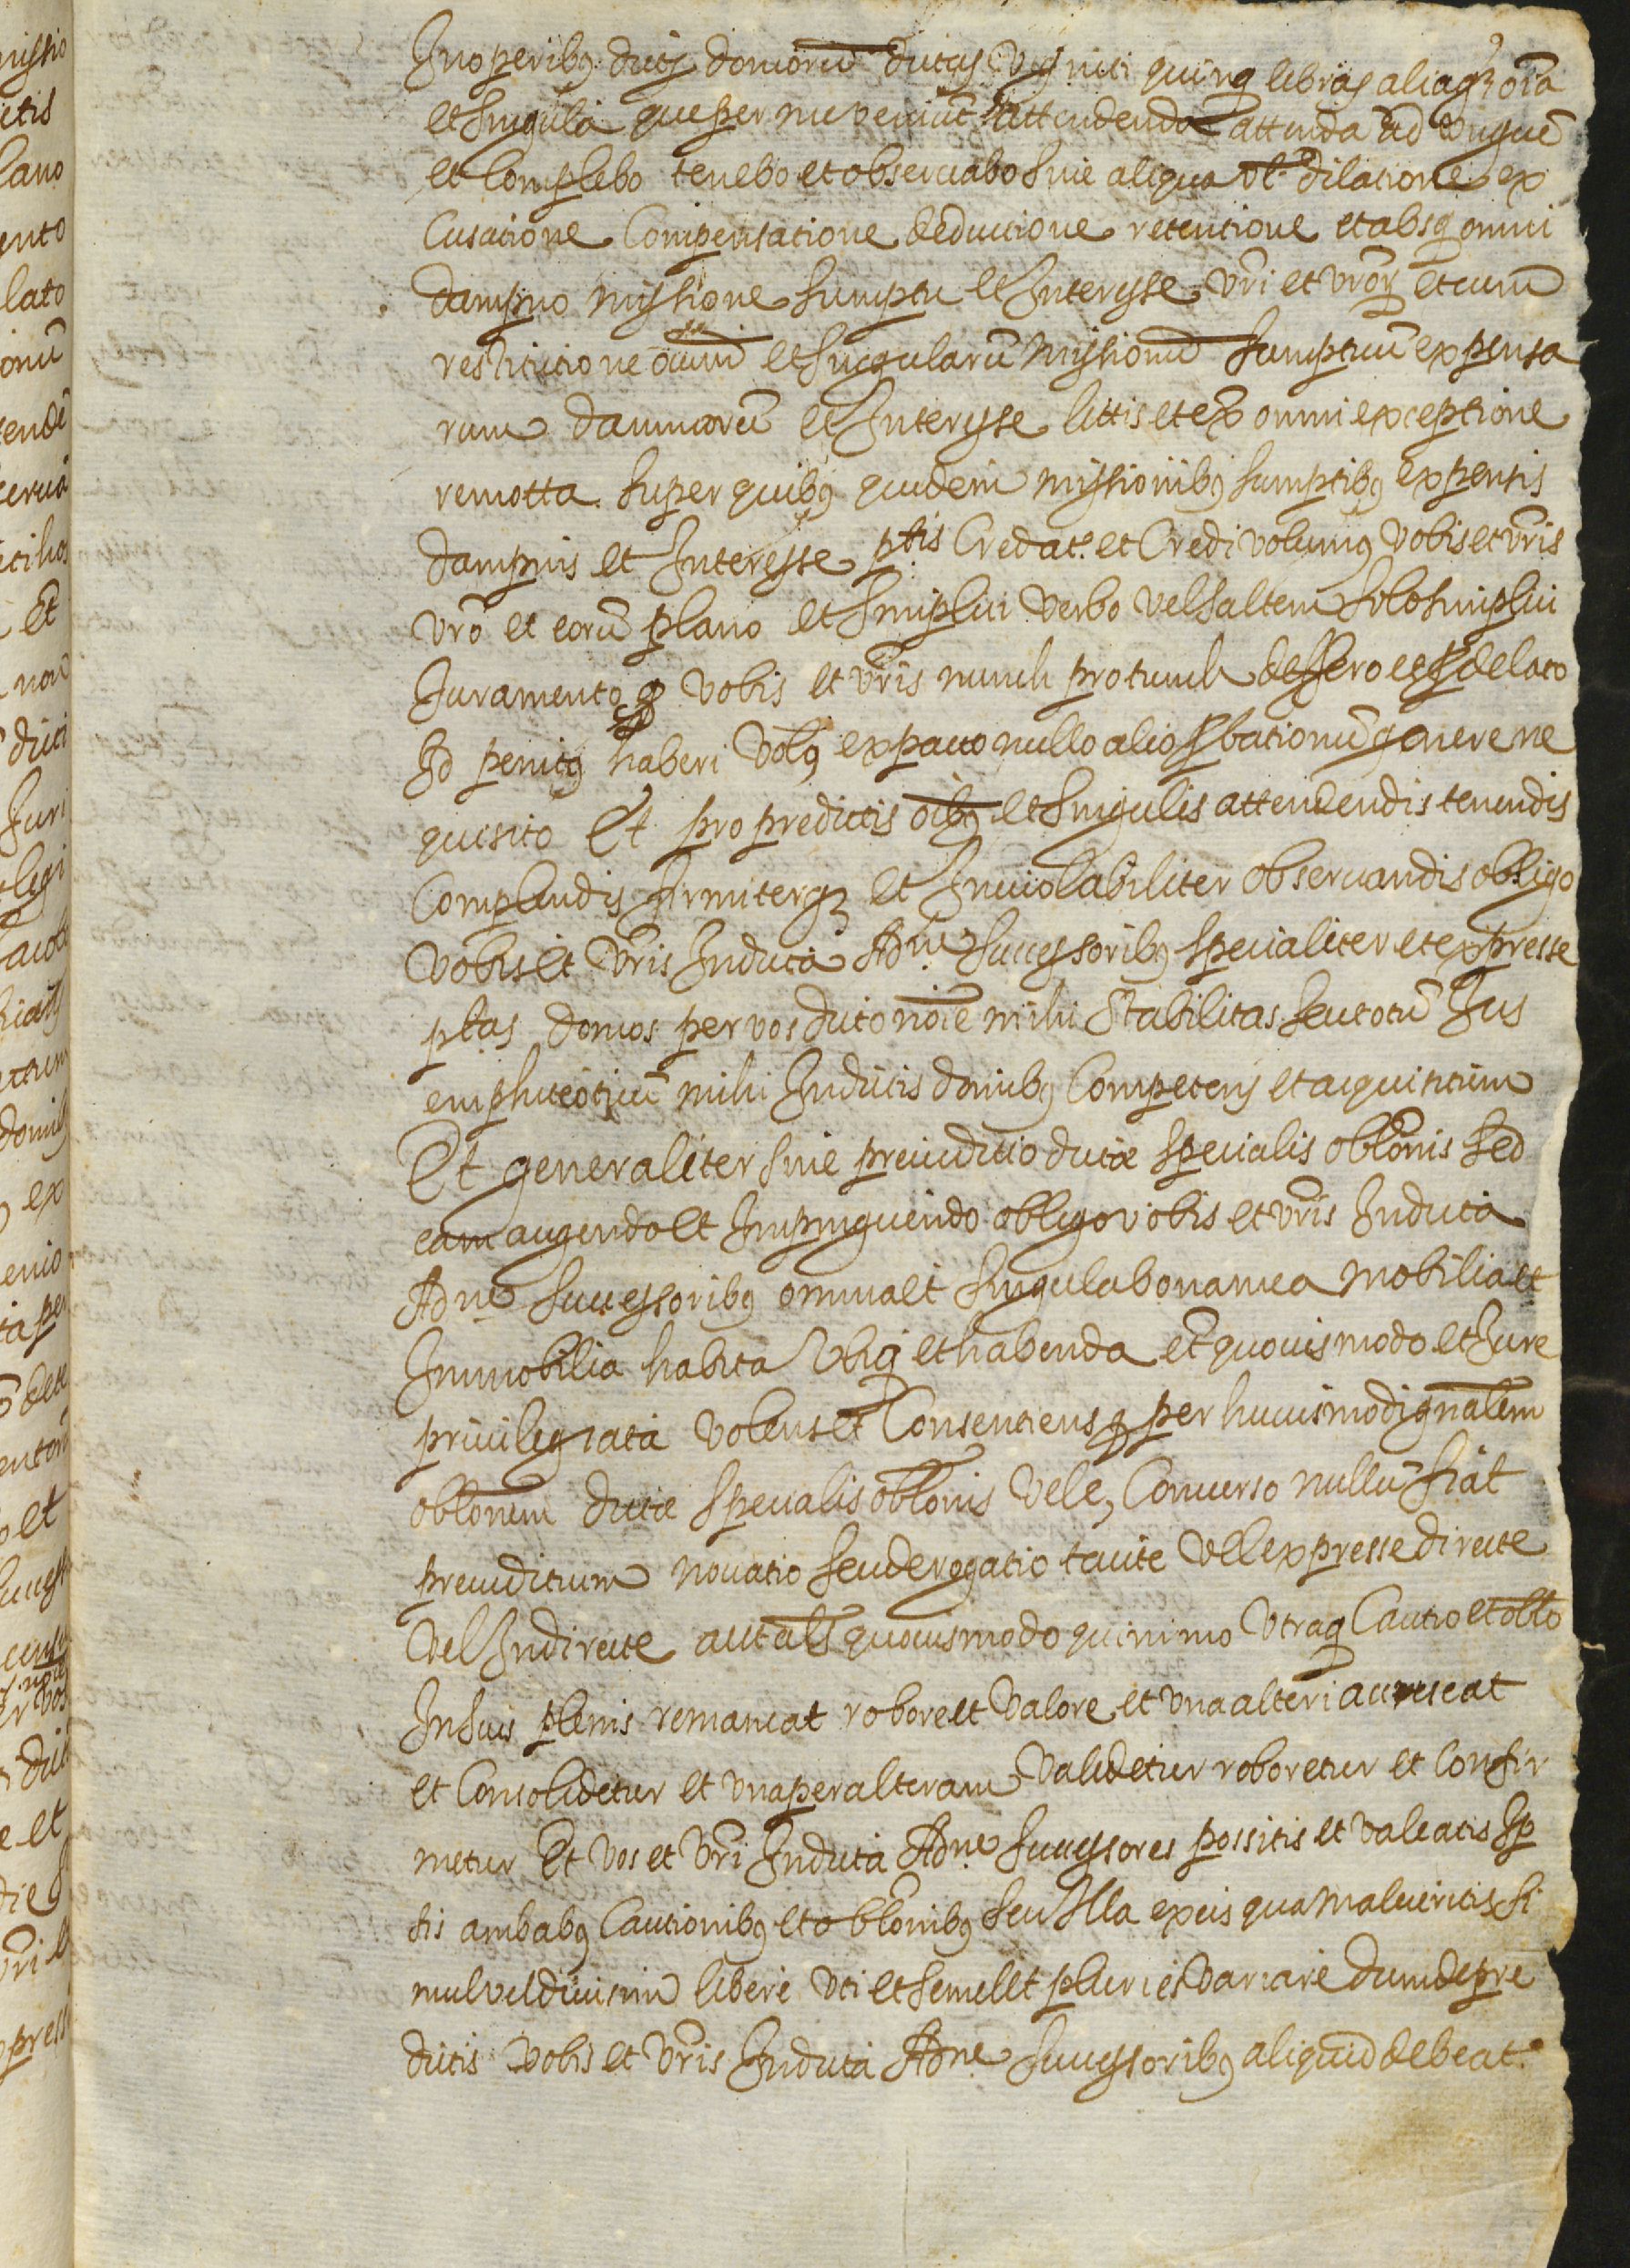 In operibus dictis domorũ dictas viginti quinq libras aliaq3 oĩa
et singula que per me veniũt attendenda attenda ad vnguẽ
et Complebo tenebo et observabo sine aliqua vl. dilatione ex
Cusatione Compensatione deductione retentione et absq omni
dampno missione sumptu et Interesse vr̃i et vr̃or et cum
restitutione oium̃ et singularũ missionũ sumptuũ expensa
rum damnorũ et Interesse littis et ex omni exceptione
remotta. Super quibus quidem missionibus sumptibus expensis
dampnis et Interesse ptis Credat. et Credi volumus vobis et vr̃is
vrõ et eorũ plano et Simplici verbo vel saltem solo simplici
Juramento q vobis et vr̃is nunch pro tunch deffero et p delato
Id penitus haberi volo ex pacto nullo alio pbationũ genere ne
quisito Et pro predictis oĩbus et singulis attendendis tenendis
Complendis firmiterq3 et Inviolabiliter observandis obligo
vobis et vr̃is In dicta Adne. Successoribus specialiter et expresse
ptas domos per vos dicto noĩe mihi Stabilitas seu totũ Jus
emphiteoticũ mihi In dictis domibus Competens et acquisitum
Et generaliter sine preiuditio dictæ specialis oblõnis sed
eam augendo et Impinguendo obligo vobis et vr̃is In dicta
Adne Successoribus omnia et singula bona mea mobilia et
Immobilia habita Vbiq et habenda et quovis modo et Jure
privilegiata volens et Consentiens q per huiusmodi gñalem
oblõnem dictæ specialis oblõnis vel e, Converso nullũ fiat
preiuditium novatio seu derogatio tacite vel expresse directe
vel Indirecte aut als quovis modo quinimo vtraq Cautio et oblo
In suis plenis remaneat robore et valore et vna alteri accrescat
et Consolidetur et vna per alteram validetur roboretur et Confir
metur Et vos et vr̃i In dicta Adne. Successores possitis et valeatis Ip
sis ambabus Cautionibus et oblõnibus seu Illa ex eis qua malueritis si
mul vel divisim libere vti et semel et pluries variare dum de pre
dictis vobis et vr̃is In dicta Adne Successoribus aliquid debeat.